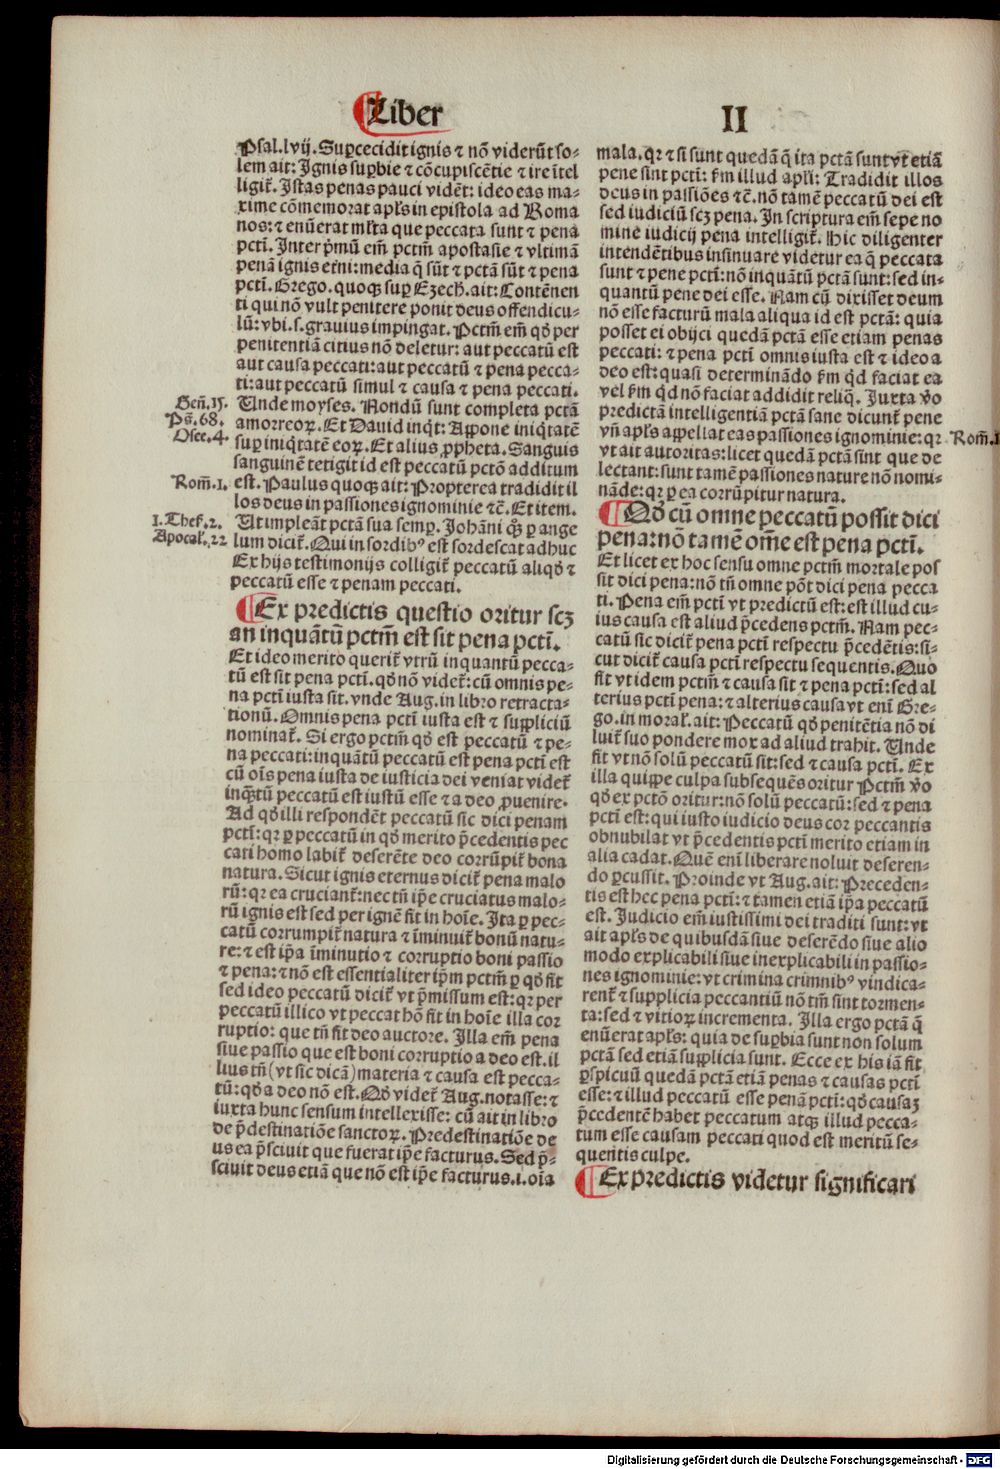 Liber
II
Psal.lvij. Suꝑcecidit ignis ⁊ nō viderūt so-
lem ait: Ignis suꝑbie ⁊ cōcupiscētie ⁊ ire ītel
ligit᷑. Istas penas pauci vidēt: ideo eas ma-
xime cōmemorat apl̓s in epistola ad Roma
nos: ⁊ enūerat ml̓ta que peccata sunt ⁊ pena
pctī. Inter pͥmū em̄ pctm̄ apostasie ⁊ vltimā
penā ignis etni: media q̄ sūt ⁊ pctā sūt ⁊ pena
pctī. Grego. quoqꝫ suꝑ Ezech. ait: Contēnen
ti qui nō vult penitere ponit deus offendicu-
lū: vbi .s. grauius impingat. Pctm̄ em̄ qđ per
penitentiā citius nō deletur: aut peccatū est
aut causa peccati: aut peccatū ⁊ pena pecca-
ti: aut peccatū simul ⁊ causa ⁊ pena peccati.
Gen̄.15.
Unde moyses. Nondū sunt completa pctā
Ps̄.68.
amorreoꝝ. Et Dauid inq̇t: Appone iniq̇tatē
Osee.4.
suꝑ iniq̇tatē eoꝝ. Et alius ꝓpheta. Sanguis
sanguinē tetigit id est peccatū pctō additum
Rom̄.1.
est. Paulus quoqꝫ ait: Propterea tradidit il
los deus in passiones ignominie ⁊c̄. Et item.
1.Thes.2.
Ut impleāt pctā sua semꝑ. Johāni q̇ꝫ ꝑ ange
Apocal̓.22
lum dicit᷑. Qui in sordibꝰ est sordescat adhuc
Ex hijs testimonijs colligit᷑ peccatū aliqđ ⁊
peccatū esse ⁊ penam peccati.
¶Ex predictis questio oritur scꝫ
an inquātū pctm̄ est sit pena pctī.
Et ideo merito querit᷑ vtrū inquantū pecca-
tū est sit pena pctī. qđ nō videt᷑: cū omnis pe-
na pctī iusta sit. vnde Aug. in libro retracta-
tionū. Omnis pena pctī iusta est ⁊ suppliciū
nominat᷑. Si ergo pctm̄ qđ est peccatū ⁊ pe-
na peccati: inquātū peccatū est pena pctī est
cū oīs pena iusta de iusticia dei veniat videt᷑
inq̇tū peccatū est iustū esse ⁊ a deo ꝓuenire.
Ad qđ illi respondēt peccatū sic dici penam
pctī: qꝛ ꝑ peccatū in qđ merito p̄cedentis pec
cati homo labit᷑ deserēte deo corrūpit᷑ bona
natura. Sicut ignis eternus dicit᷑ pena malo
rū: qꝛ ea cruciant᷑: nec tn̄ ip̄e cruciatus malo-
rū ignis est sed per ignē fit in hoīe. Ita ꝑ pec-
catū corrumpit᷑ natura ⁊ īminuit᷑ bonū natu-
re: ⁊ est ip̄a īminutio ⁊ corruptio boni passio
⁊ pena: ⁊ nō est essentialiter ip̄m pctm̄ ꝑ qđ fit
sed ideo peccatū dicit᷑ vt p̄missum est: qꝛ per
peccatū illico vt peccat hō fit in hoīe illa cor
ruptio: que tn̄ fit deo auctore. Illa em̄ pena
siue passio que est boni corruptio a deo est. il
lius tn̄ (vt sic dicā) materia ⁊ causa est pecca-
tū: qđ a deo nō est. Qđ videt᷑ Aug. notasse: ⁊
iuxta hunc sensum intellexisse: cū ait in libro
de p̄destinatiōe sanctoꝝ. Predestinatiōe de
us ea p̄sciuit que fuerat ip̄e facturus. Sed p̄-
sciuit deus etiā que nō est ip̄e facturus.i.oīa
mala. qꝛ ⁊ si sunt quedā q̄ ita pctā sunt vt etiā
pene sint pctī: ẜm illud apl̓i: Tradidit illos
deus in passiōes ⁊c̄. nō tamē peccatū dei est
sed iudiciū scꝫ pena. In scriptura em̄ sepe no
mine iudicij pena intelligit᷑. Hic diligenter
intendētibus insinuare videtur ea q̄ peccata
sunt ⁊ pene pctī: nō inquātū pctā sunt: sed in-
quantū pene dei esse. Nam cū dixisset deum
nō esse facturū mala aliqua id est pctā: quia
posset ei obijci quedā pctā esse etiam penas
peccati: ⁊ pena pctī omnis iusta est ⁊ ideo a
deo est: quasi determinādo ẜm qđ faciat ea
vel ẜm qđ nō faciat addidit reliq̄. Juxta v̊o
predictā intelligentiā pctā sane dicunt᷑ pene
vn̄ apl̓s appellat eas passiones ignominie: qꝛ
Rom̄.1
vt ait autoritas: licet quedā pctā sint que de
lectant: sunt tamē passiones nature nō nomi-
nāde: qꝛ ꝑ ea corrūpitur natura.
¶Qđ cū omne peccatū possit dici
pena: nō tamē om̄e est pena pctī.
Et licet ex hoc sensu omne pctm̄ mortale pos
sit dici pena: nō tn̄ omne pōt dici pena pecca
ti. Pena em̄ pctī vt predictū est: est illud cu-
ius causa est aliud p̄cedens pctm̄. Nam pec-
catū sic dicit᷑ pena pctī respectu p̄cedētis: si-
cut dicit᷑ causa pctī respectu sequentis. Quo
fit vt idem pctm̄ ⁊ causa sit ⁊ pena pctī: sed al
terius pctī pena: ⁊ alterius causa vt enī Gre-
go. in moral̓. ait: Peccatū qđ penitētia nō di
luit᷑ suo pondere mox ad aliud trahit. Unde
fit vt nō solū peccatū sit: sed ⁊ causa pctī. Ex
illa quippe culpa subsequēs oritur Pctm̄ v̊o
qđ ex pctō oritur: nō solū peccatū: sed ⁊ pena
pctī est: qui iusto iudicio deus cor peccantis
obnubilat vt p̄cedentis pctī merito etiam in
alia cadat. Quē enī liberare noluit deseren-
do ꝑcussit. Proinde vt Aug. ait: Preceden-
tis est hec pena pctī: ⁊ tamen etiā ip̄a peccatū
est. Judicio em̄ iustissimi dei traditi sunt: vt
ait apl̓s de quibusdā siue deserēdo siue alio
modo explicabili siue inexplicabili in passio-
nes ignominie: vt crimina crimnibꝰ vindica-
rent᷑ ⁊ supplicia peccantiū nō tm̄ sint tormen-
ta: sed ⁊ vitioꝝ incrementa. Illa ergo pctā q̄
enūerat apl̓s: quia de suꝑbia sunt non solum
pctā sed etiā supplicia sunt. Ecce ex his iā fit
ꝑspicuū quedā pctā etiā penas ⁊ causas pctī
esse: ⁊ illud peccatū esse penā pctī: qđ causaꝫ
p̄cedentē habet peccatum atqꝫ illud pecca-
tum esse causam peccati quod est meritū se-
quentis culpe.
¶Ex predictis videtur significari
Digitalisierung gefördert durch die Deutsche Forschungsgemeinschaft - DFG